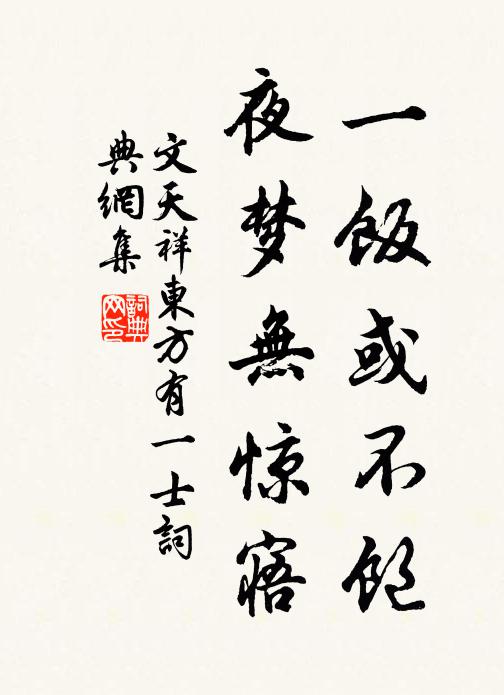 一飯或不飽
夜梦無惊寤
文天祥東方有一士詞
典網集
詞典
网印